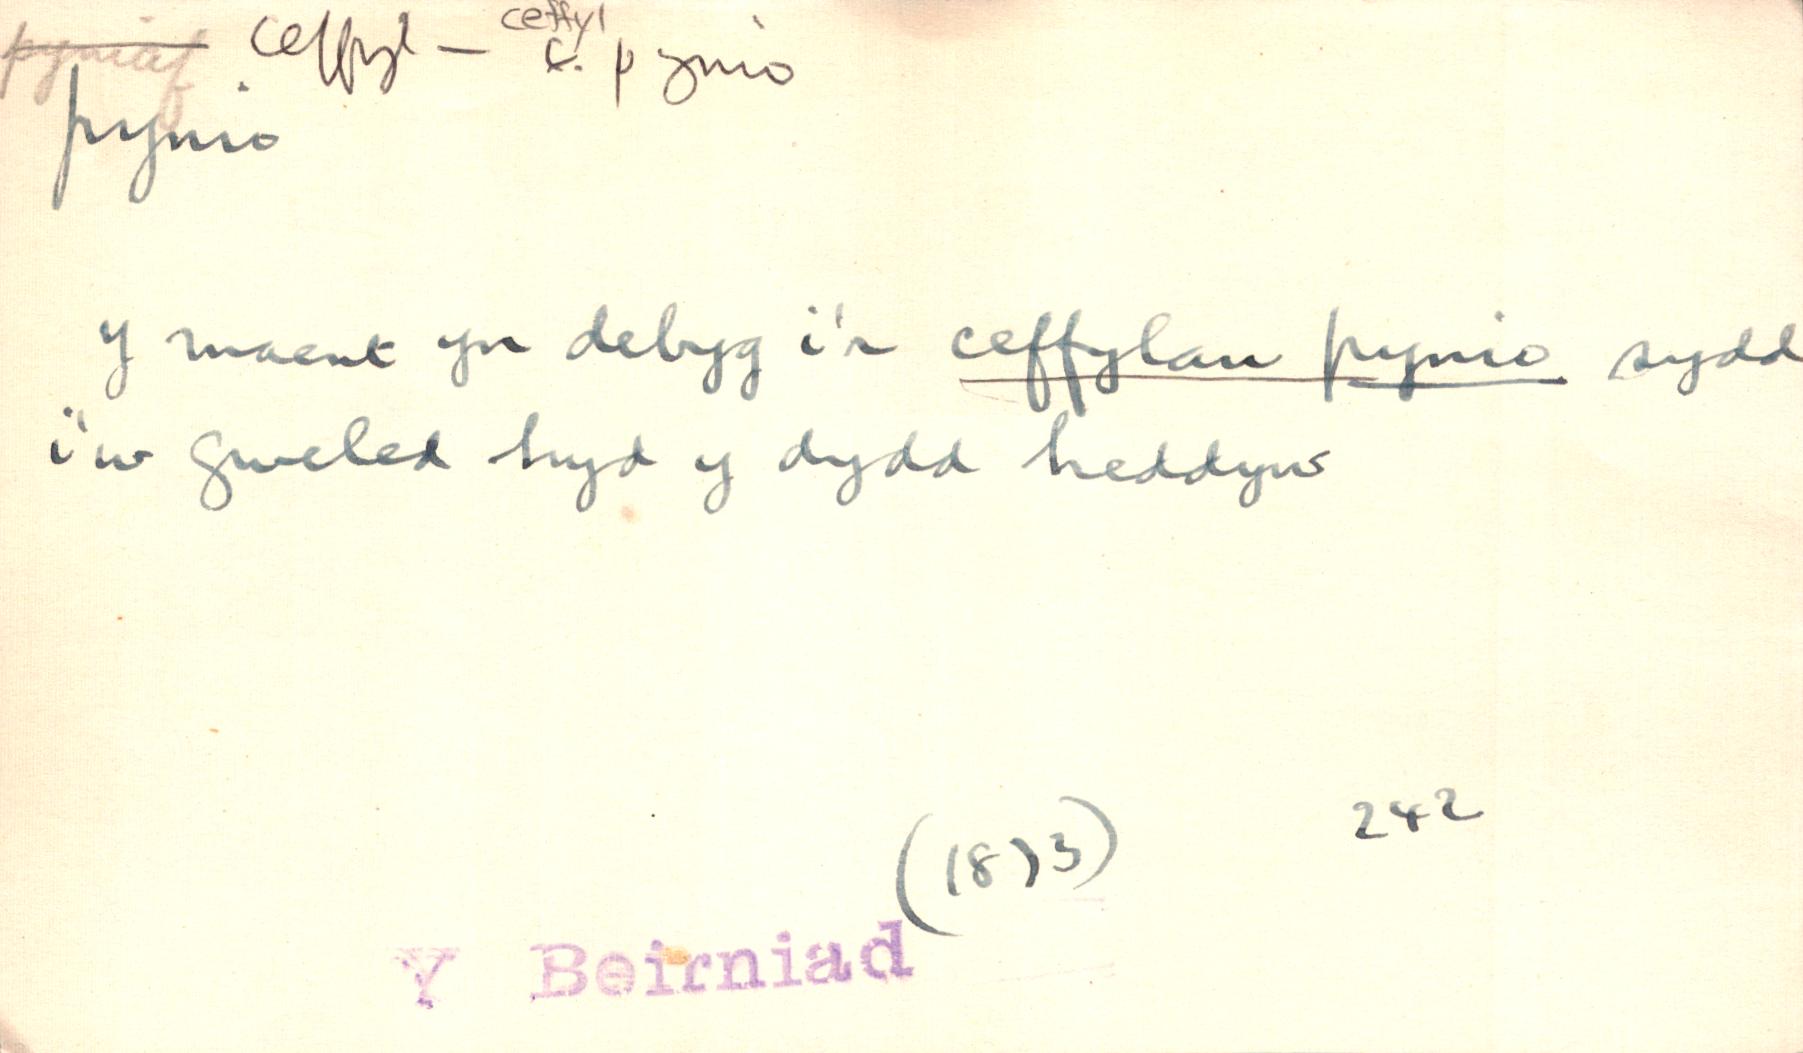 pyniaf ceffyl — ceffyl c. pynio
pynio
y maent yn debyg i'r ceffylau pynio sydd
i'w gweled hyd y dydd heddyw
(1873) 242
Y Beirniad